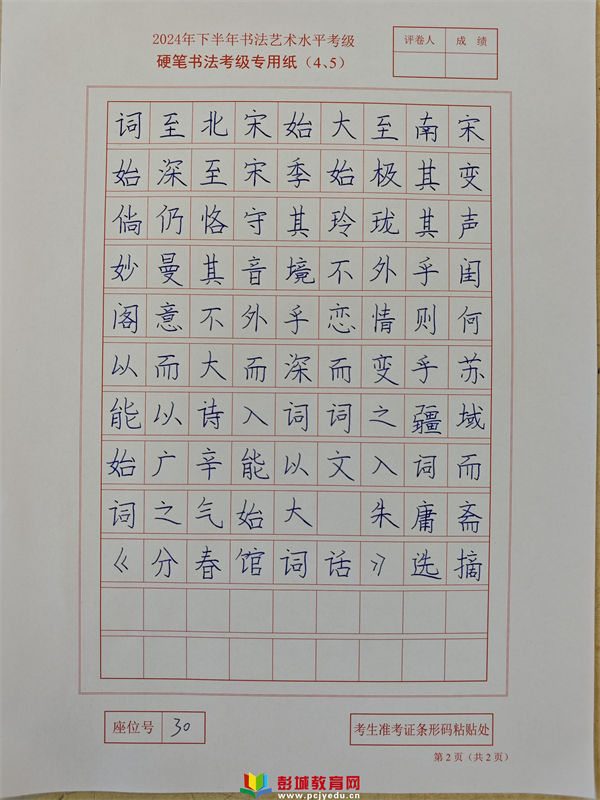 2024年下半年书法艺术水平考级
硬笔书法考级专用纸（4、5）
评卷人 成绩
词至北宋始大至南宋
始深至宋季始极其变
倘仍恪守其玲珑其声
妙曼其音境不外乎闺
阁意不外乎恋情则何
以而大而深而变乎苏
能以诗入词词之疆域
始广辛能以文入词而
词之气始大 朱庸斋
《分春馆词话》选摘
座位号 30
考生准考证条形码粘贴处
第2页（共2页）
彭城教育网
www.pcjyedu.cn